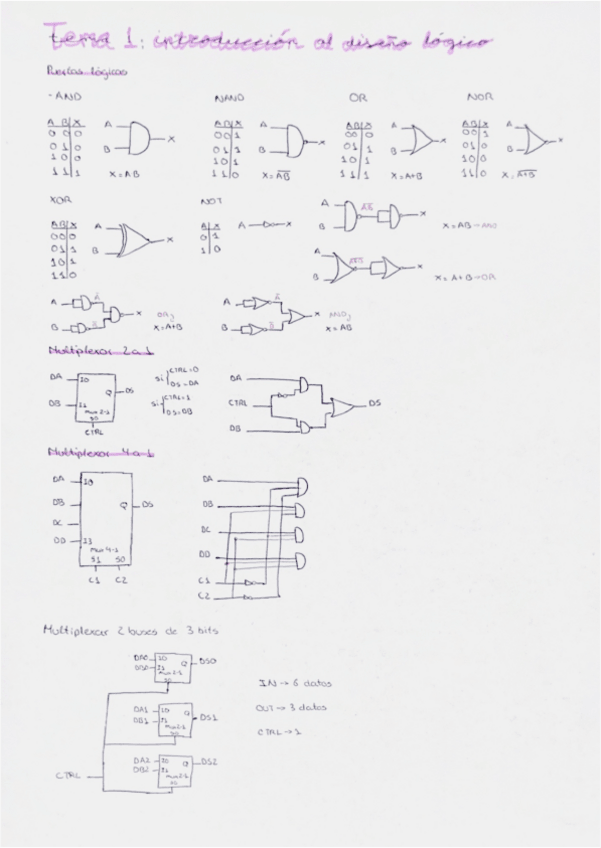 Tema 1: introducción al diseño lógico
Puertas lógicas
- AND
NAND
OR
NOR
A B X
0 0 0
0 1 0
1 0 0
1 1 1
A
B
X
X = AB
A B X
0 0 1
0 1 1
1 0 1
1 1 0
A
B
X
X = A̅B̅
A B X
0 0 0
0 1 1
1 0 1
1 1 1
A
B
X
X = A+B
A B X
0 0 1
0 1 0
1 0 0
1 1 0
A
B
X
X = A̅+̅B̅
XOR
NOT
A B X
0 0 0
0 1 1
1 0 1
1 1 0
A
B
X
A X
0 1
1 0
A
X
A
B
A̅B̅
X
X = AB → AND
A
B
X
X = A+B → OR
A
B
X
X = A+B
A
B
X
X = AB
Multiplexor 2 a 1
DA
DB
I0
I1
Q
DS
Mux 2-1
S0
CTRL
si CTRL = 0
DS = DA
si CTRL = 1
DS = DB
DA
CTRL
DB
DS
Multiplexor 4 a 1
DA
DB
DC
DD
I0
I3
Q
DS
Mux 4-1
S1 S0
C1 C2
DA
DB
DC
DD
C1
C2
Multiplexar 2 buses de 3 bits
DA0
DB0
I0
I1
Q
DS0
Mux 2-1
S0
IN → 6 datos
OUT → 3 datos
CTRL → 1
DA1
DB1
I0
I1
Q
DS1
Mux 2-1
S0
DA2
DB2
I0
I1
Q
DS2
Mux 2-1
S0
CTRL